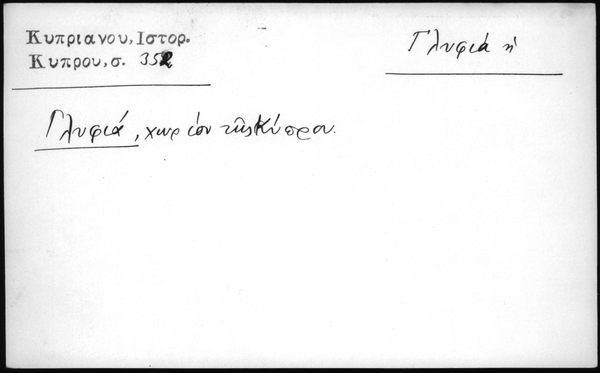 Κυπριανου, Ιστορ.
Κυπρου, σ. 352
Γλυφιά ἡ
Γλυφιά, χωρίον τῆς Κύπρου.